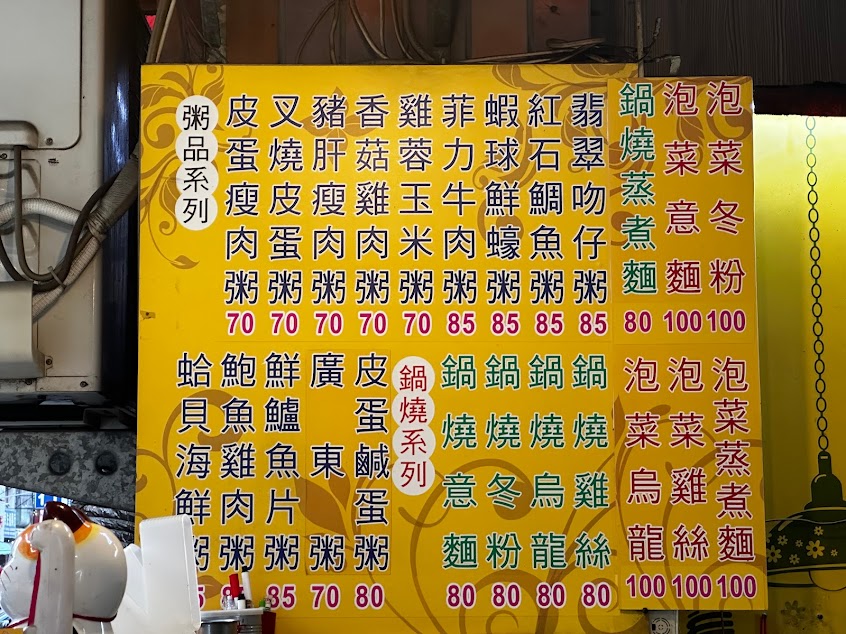 粥品系列
皮蛋瘦肉粥 70
叉燒皮蛋粥 70
豬肝瘦肉粥 70
香菇雞肉粥 70
雞蓉玉米粥 70
菲力牛肉粥 85
蝦球鮮蠔粥 85
紅石鯛魚粥 85
翡翠吻仔粥 85
鍋燒蒸煮麵 80
泡菜意麵 100
泡菜冬粉 100
蛤貝海鮮粥 5
鮑魚雞肉粥 8
鮮鱸魚片粥 85
廣東粥 70
皮蛋鹹蛋粥 80
鍋燒系列
鍋燒意麵 80
鍋燒冬粉 80
鍋燒烏龍 80
鍋燒雞絲 80
泡菜烏龍 100
泡菜雞絲 100
泡菜蒸煮麵 100